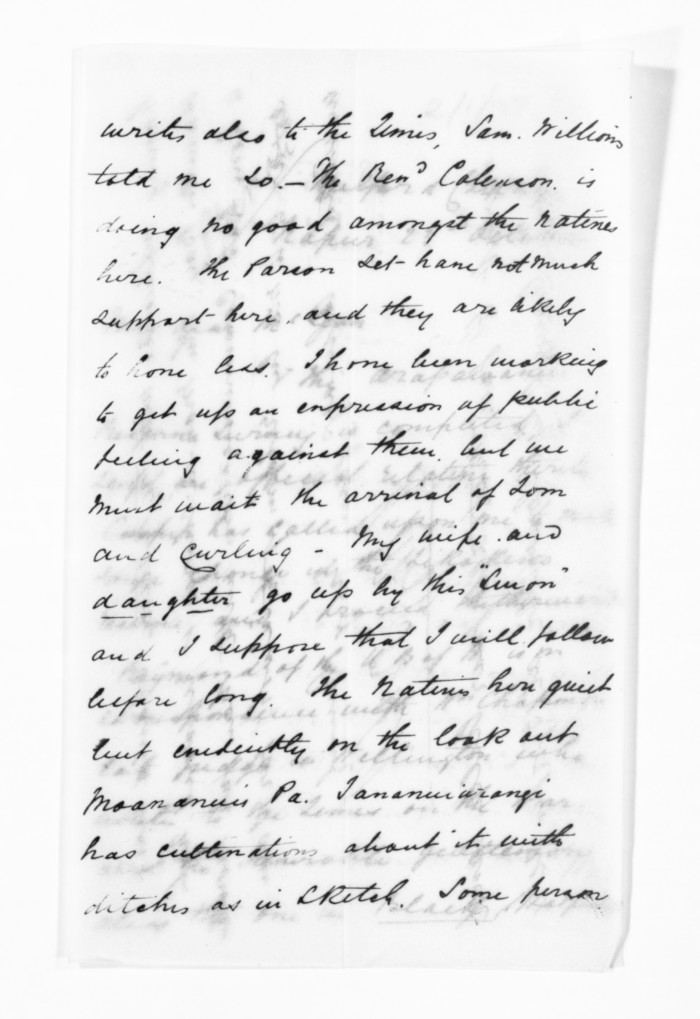 writes also to the Times, Sam. Williams
told me so. — The Revd Colenson. is
doing no good amongst the Natives
here. The Parson set have not much
support here. and they are likely
to have less. I have been working
to get up an expression of public
feeling against them. but we
must wait the arrival of Tom
and Curling - My wife. and
daughter go up by this "Simon"
and I suppose that I will follow
before long. The Natives here quiet
but evidently on the look out
Moananuis Pa. Tananuiarangi
has cultivations about it with
ditches as in sketch. Some person